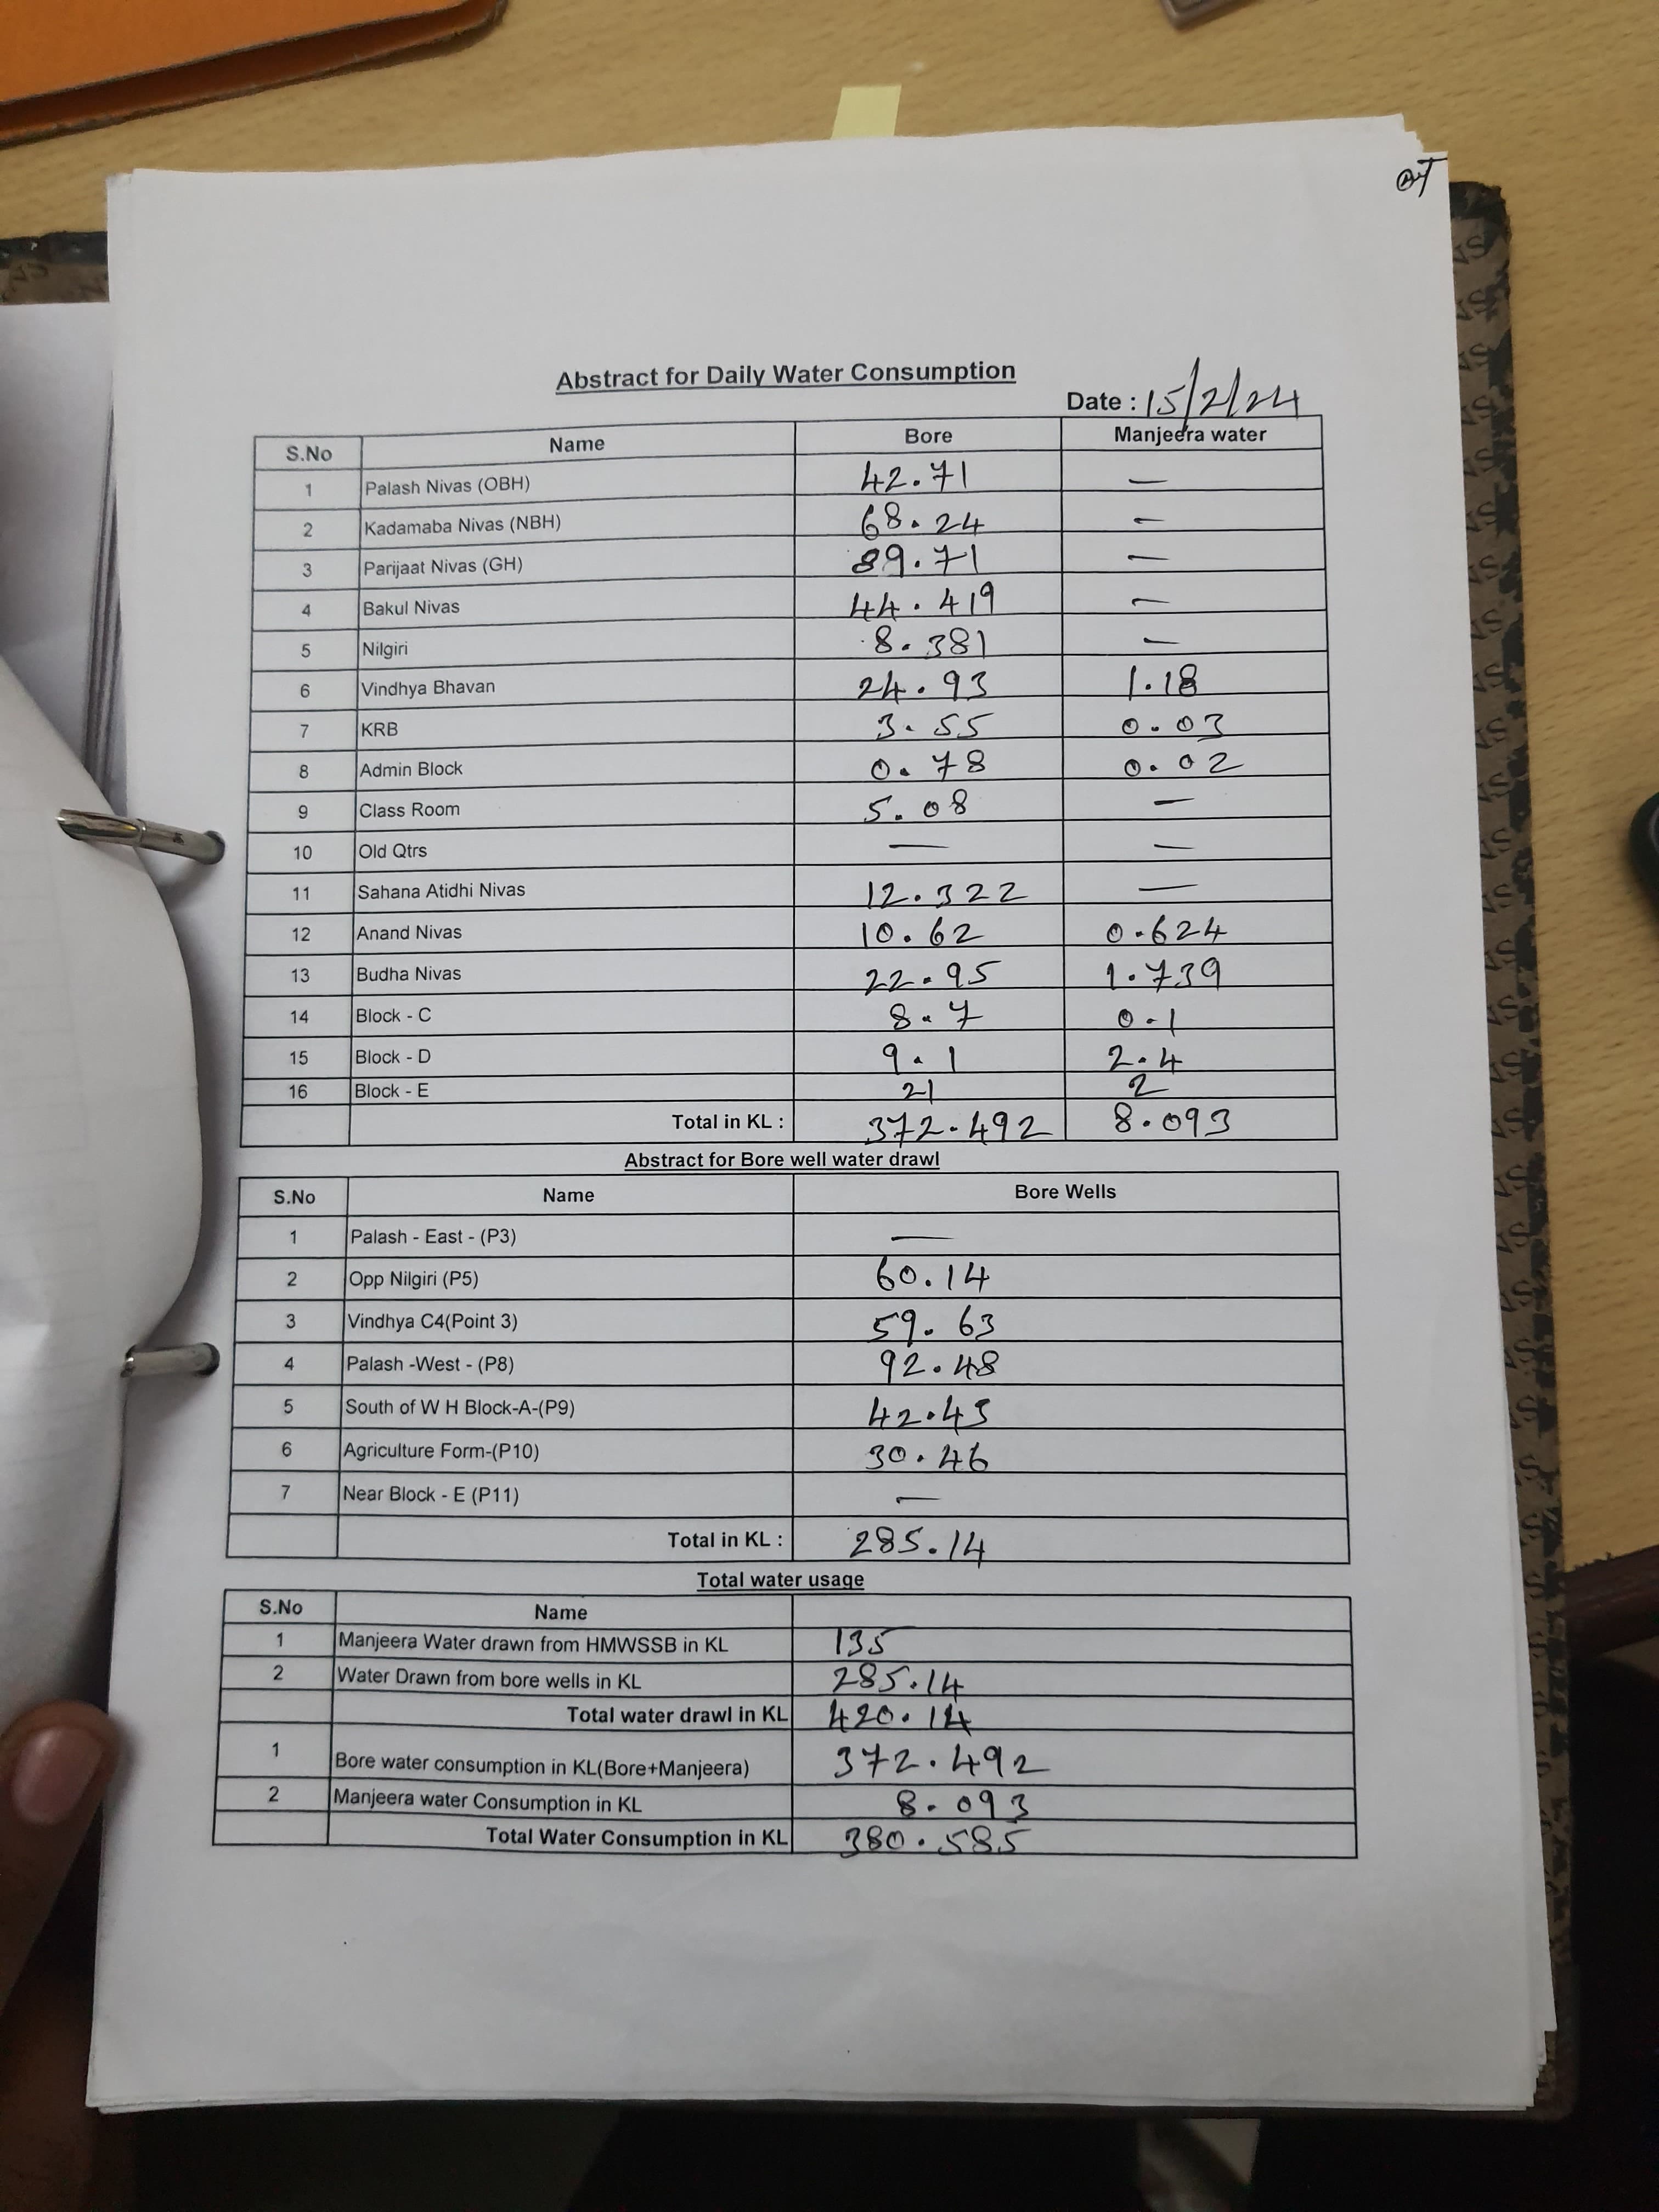 Abstract for Daily Water Consumption
Date : 15/2/24
S.No Name Bore Manjeera water
1 Palash Nivas (OBH) 42.71 —
2 Kadamaba Nivas (NBH) 68.24 —
3 Parijaat Nivas (GH) 89.71 —
4 Bakul Nivas 44.419 —
5 Nilgiri 8.381 —
6 Vindhya Bhavan 24.93 1.18
7 KRB 3.55 0.03
8 Admin Block 0.78 0.02
9 Class Room 5.08 —
10 Old Qtrs — —
11 Sahana Atidhi Nivas 12.322 —
12 Anand Nivas 10.62 0.624
13 Budha Nivas 22.95 1.739
14 Block - C 8.7 0.1
15 Block - D 9.1 2.4
16 Block - E 21 2
Total in KL : 372.492 8.093
Abstract for Bore well water drawl
S.No Name Bore Wells
1 Palash - East - (P3) —
2 Opp Nilgiri (P5) 60.14
3 Vindhya C4(Point 3) 59.63
4 Palash -West - (P8) 92.48
5 South of W H Block-A-(P9) 42.43
6 Agriculture Form-(P10) 30.46
7 Near Block - E (P11) —
Total in KL : 285.14
Total water usage
S.No Name
1 Manjeera Water drawn from HMWSSB in KL 135
2 Water Drawn from bore wells in KL 285.14
Total water drawl in KL 420.14
1 Bore water consumption in KL(Bore+Manjeera) 372.492
2 Manjeera water Consumption in KL 8.093
Total Water Consumption in KL 380.585